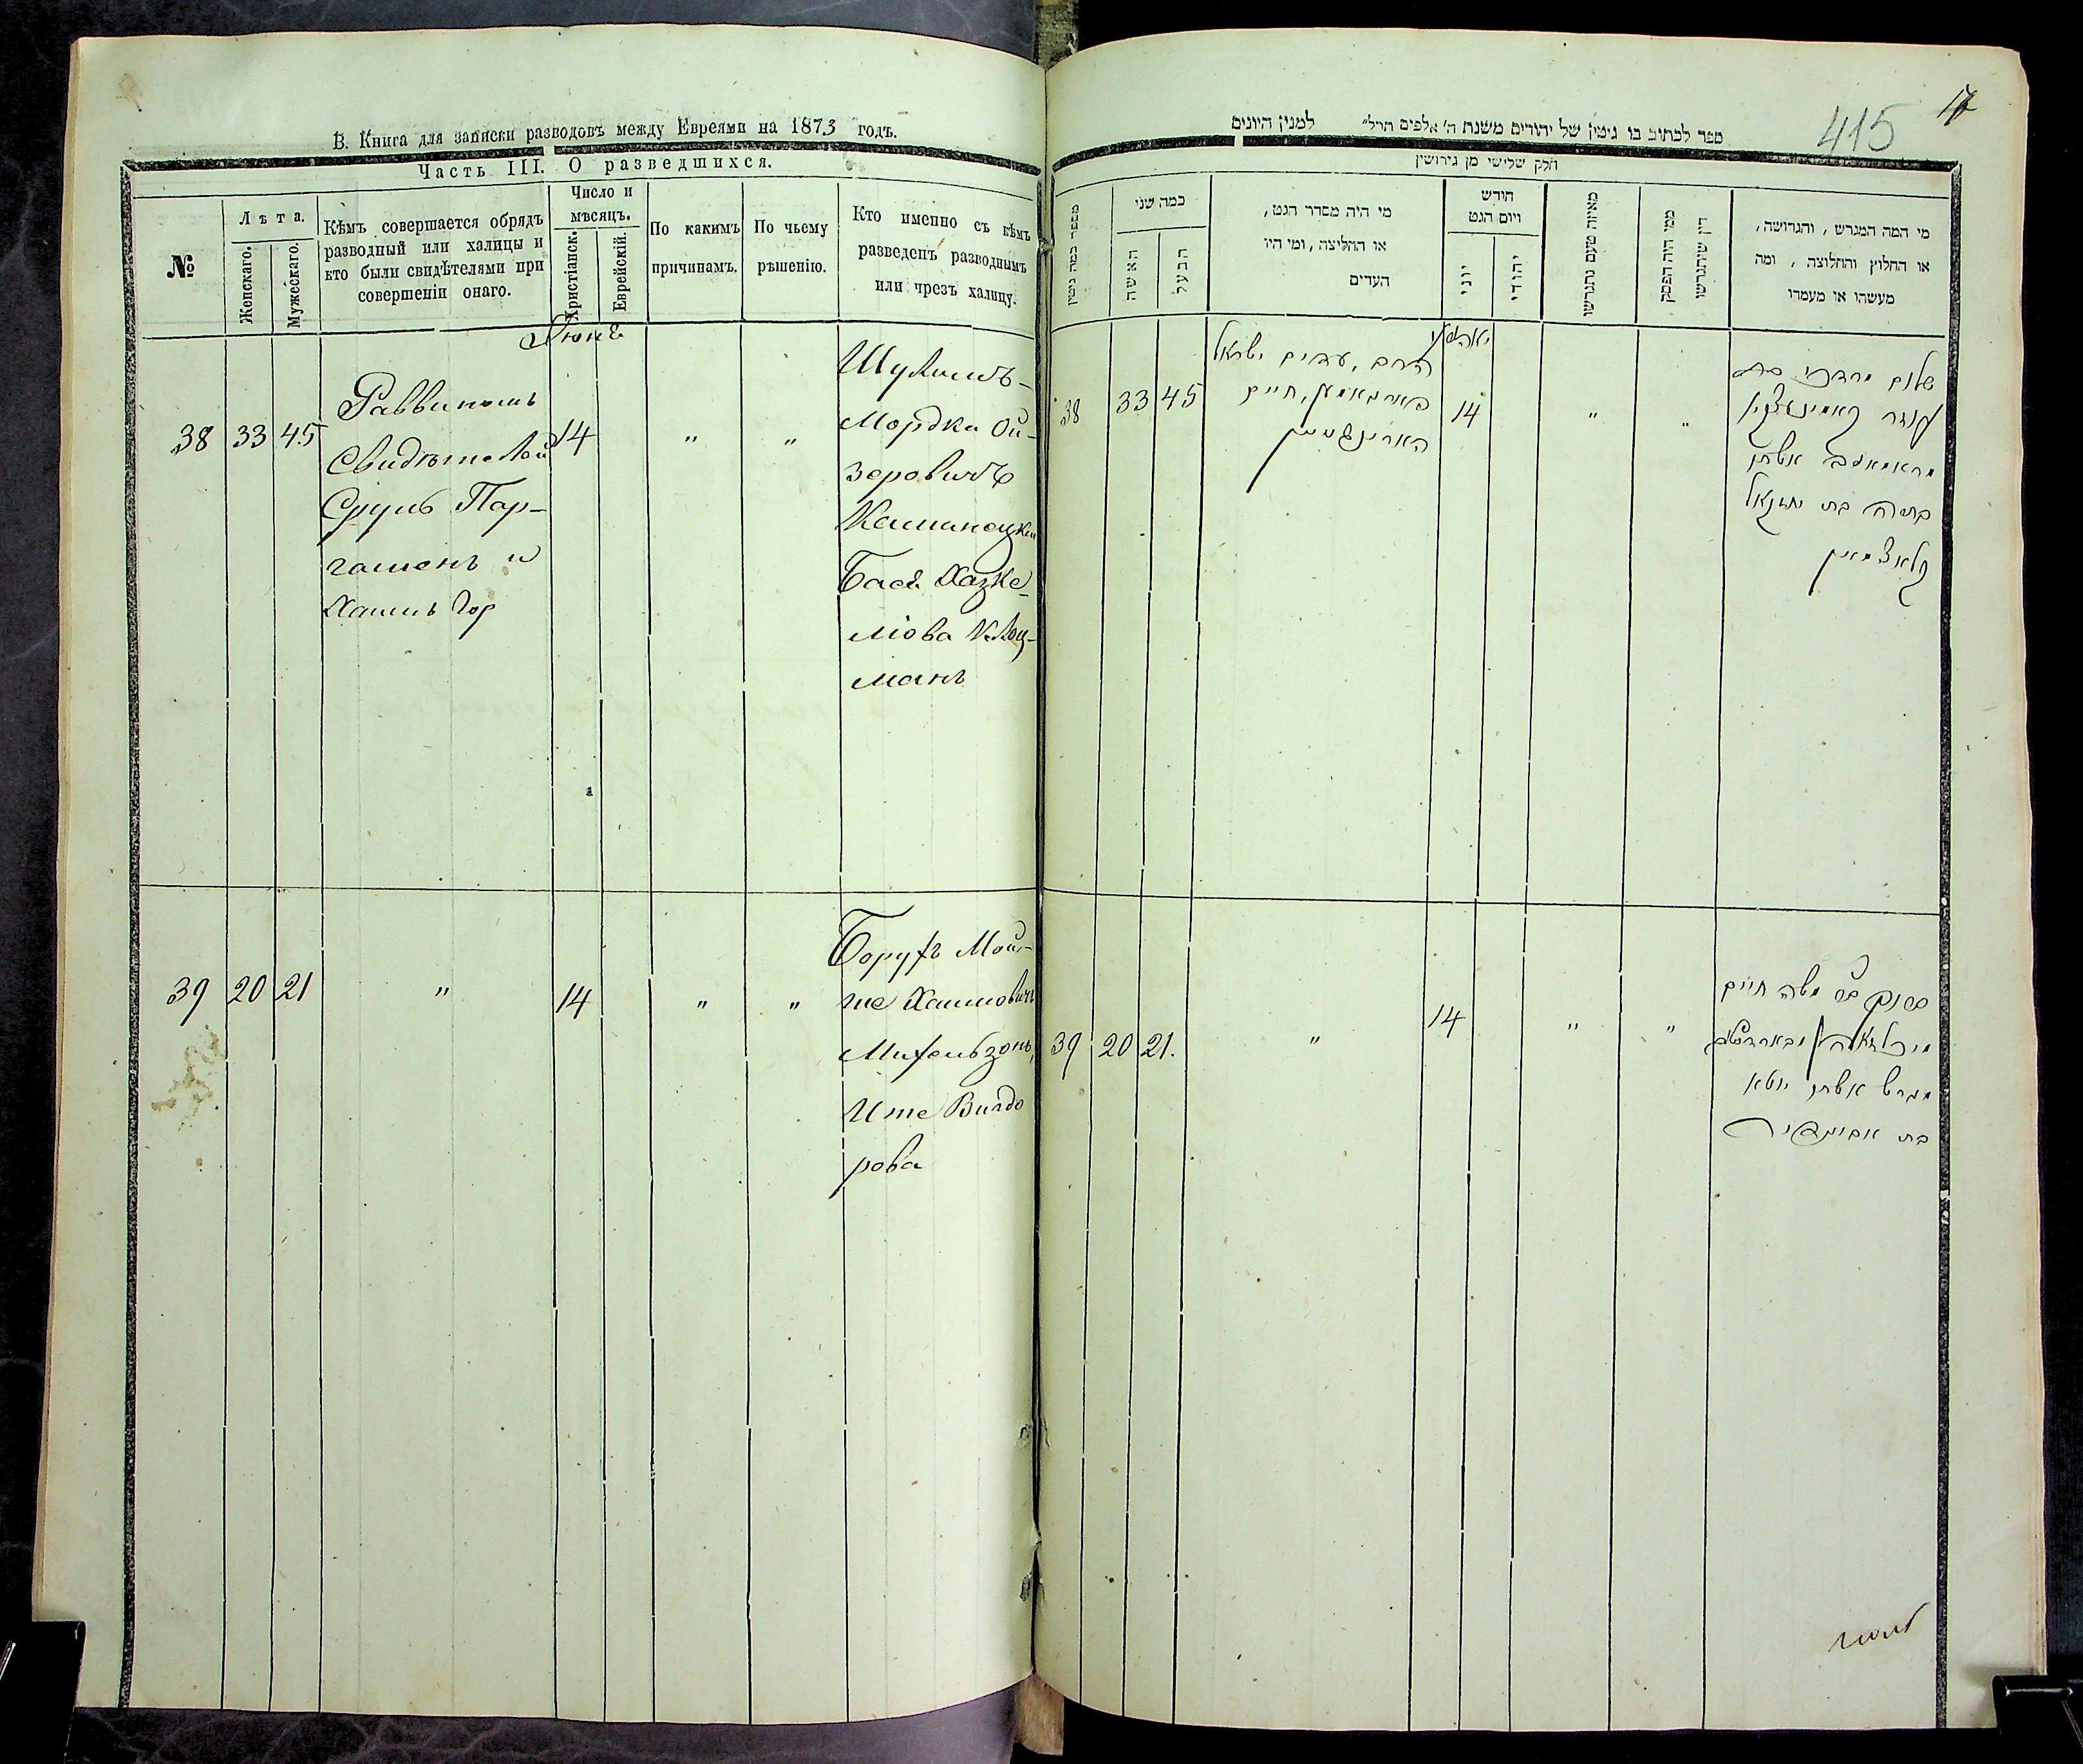 В. Книга для записки разводовъ между Евреями на 1873 годъ.
Часть III. О разведшихся.
№
Лѣта.
Женскаго.
Мужескаго.
Кѣмъ совершается обрядъ
разводный или халицы и
кто были свидѣтелями при
совершеніи онаго.
Число и
мѣсяцъ.
Христіанск.
Еврейскій.
По какимъ
причинамъ.
По чьему
рѣшенію.
Кто именно съ кѣмъ
разведенъ разводнымъ
или чрезъ халицу.
38
33
45
Раввиномъ
Свидѣтелей
Сруль Пар-
гаменъ и
Хаимъ Гор
14
"
"
Шулимъ-
Мордка Ои-
зеровичъ
Каминецкій
Бася Хазке-
ліова Клоц-
манъ
39
20
21
"
14
"
"
Борухъ Мой-
ше Хаимовичъ
Михельзонъ,
Ите Вигдо
рова
17
415
ספר לכתוב בו גיטין של יהודים משנת ה' אלפים תרל״ למנין היונים
חלק שלישי מן גירושין
מספר כמה גיטין
כמה שני
האשה
הבעל
מי היה מסדר הגט,
או החליצה, ומי היו
העדים
חודש
ויום הגט
יוני
יהודי
מאיזה טעם נתגרשו
ממי היה הפסק
דין שיתגרשו
מי המה המגרש, והגרושה,
או החלוץ והחלוצה, ומה
מעשהו או מעמדו
38
33
45
הרב, עדים ישראל
חיים
14
"
"
שלום מרדכי
אשתו
בת יחזקאל
קלאצמאן
39
20
21.
"
14
"
"
ברוך בר משה חיים
אשתו יוטא
בת אביגדור